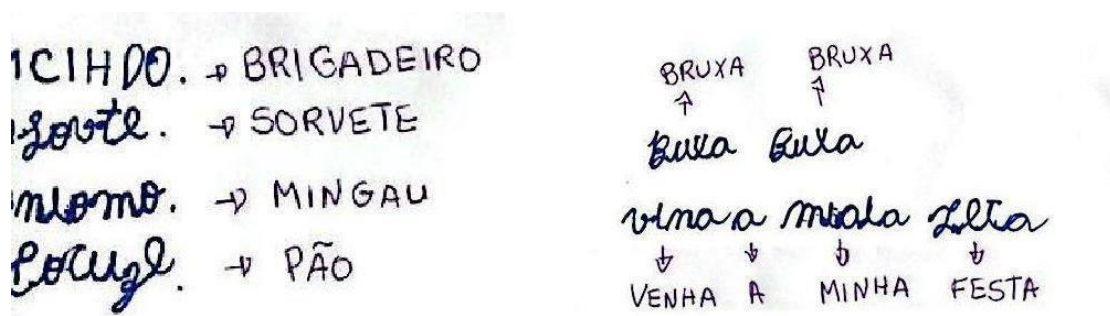 ICIHDO. → BRIGADEIRO
sovte. → SORVETE
niomo. → MINGAU
→ PÃO
BRUXA BRUXA
Buxa Buxa
vina a miala
VENHA A MINHA FESTA